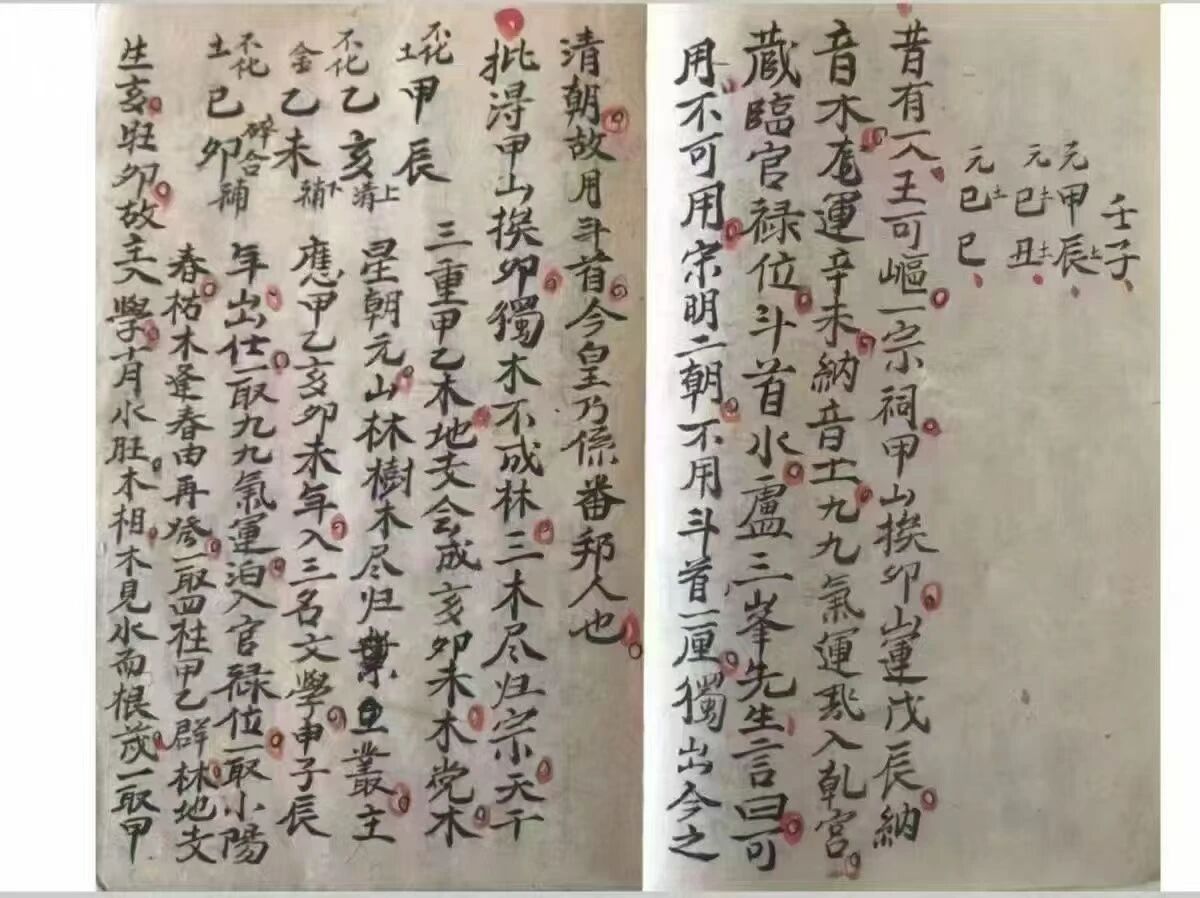 壬子
元甲辰上
土
元己丑土
土
元己巳
昔有一人王可嶇一宗祠甲山揆卯山運戊辰納
音木尅運辛未納音土九九氣運飛入乾宮
藏臨官禄位斗首水盧三峯先生言曰可
用不可用宗明二朝不用斗首一厘獨出今之
清朝故月斗首今皇乃係番邦人也
批淂甲山揆卯獨木不成林三木尽归宗天干
不化土甲辰
三重甲乙木地支会成亥卯未木党木
不化乙亥清上
星朝元山林樹木尽归叢主
不化金乙未補下
應甲乙亥卯未年入三名文學申子辰
不化土己卯碎合補
年出仕一取九九氣運泊入官禄位一取小陽
春枯木逢春由再發一取四柱甲乙群林地支
生亥旺卯故主入學十月水旺木相木見水而根茂一取甲